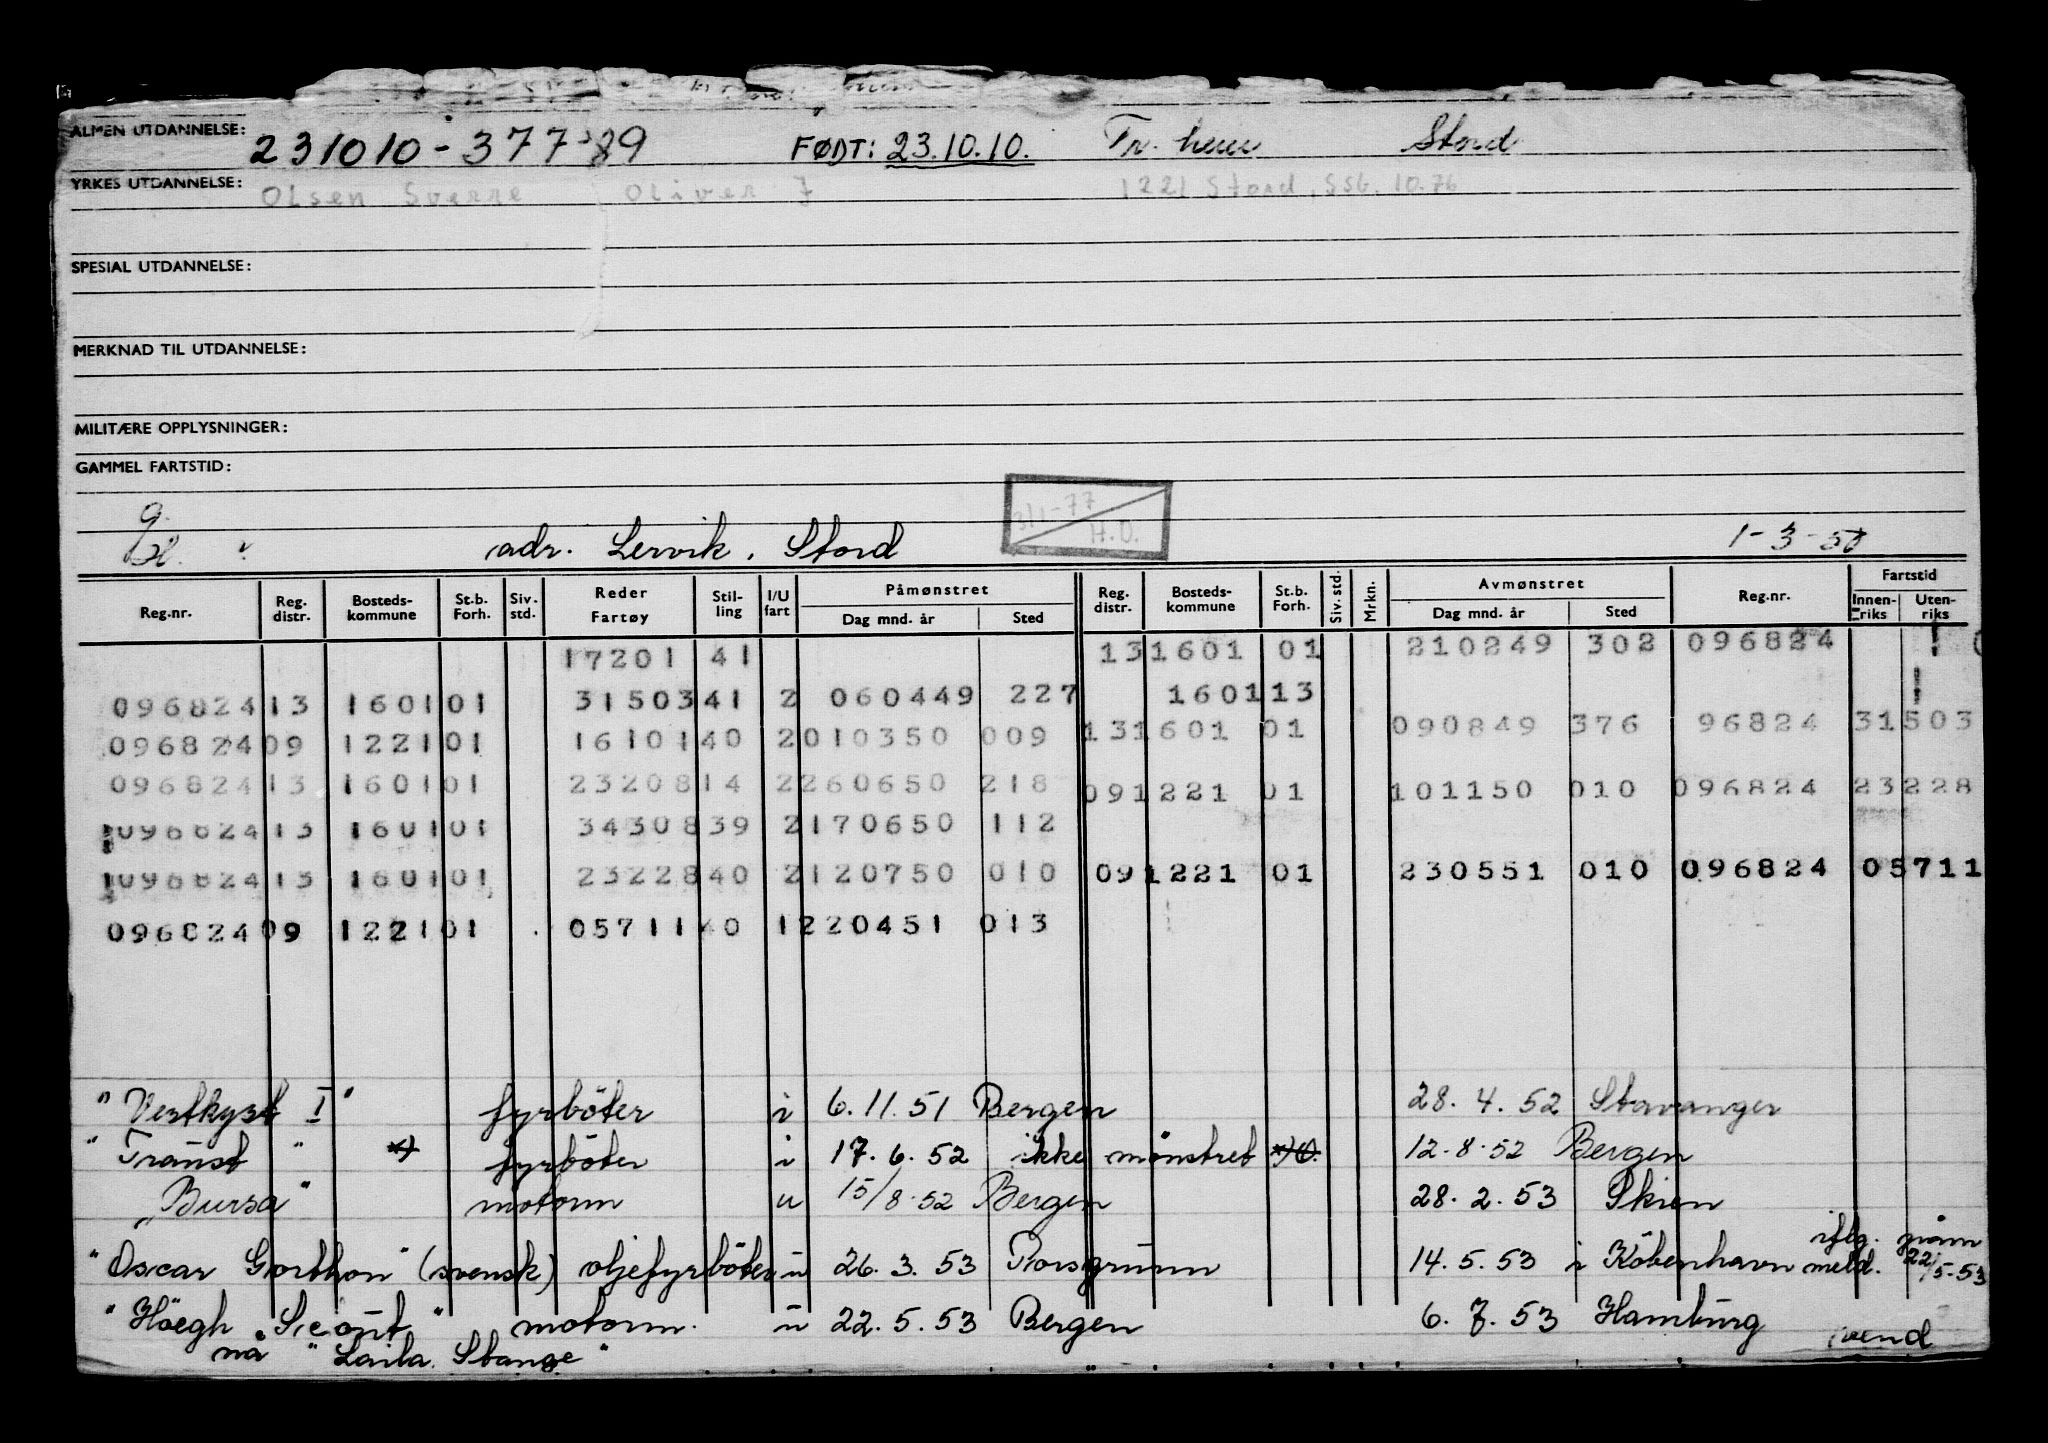 ALMEN UTDANNELSE: 231010-37789 FØDT: 23.10.10. Tr. heim Stord
YRKES UTDANNELSE: Olsen Sverre Oliver J 1221 Stord, SSB. 10.76
SPESIAL UTDANNELSE:
MERKNAD TIL UTDANNELSE:
MILITÆRE OPPLYSNINGER:
GAMMEL FARTSTID:
3/1-77 H.O.
adr. Lervik. Stord 1-3-50
Reg.nr. Reg. distr. Bosteds-kommune St.b. Forh. Siv. std. Reder Fartøy Stil-ling I/U fart Påmønstret Dag mnd. år Sted Reg. distr. Bosteds-kommune St.b. Forh. Siv. std. Mrkn. Avmønstret Dag mnd. år Sted Reg.nr. Fartstid Innen-riks Uten-riks
17201 41 131601 01 210249 302 096824
096824 13 1601 01 31503 41 2 060449 227 1601 13
096824 09 1221 01 16101 40 2 010350 009 131601 01 090849 376 96824 31503
096824 13 1601 01 23208 14 2 260650 218 091221 01 101150 010 096824 23228
096824 13 1601 01 34308 39 2 170650 112
096824 13 1601 01 23228 40 2 120750 010 091221 01 230551 010 096824 05711
096824 09 1221 01 05711 40 1 220451 013
"Vestkyst I" fyrböter i 6.11.51 Bergen 28.4.52 Stavanger
"Traust" fyrböter i 17.6.52 ikke mönstret 12.8.52 Bergen
"Bursa" motorm u 15/8.52 Bergen 28.2.53 Skien
"Oscar Gorthon" (svensk) oljefyrböter u 26.3.53 Porsgrunn 14.5.53 i Köbenhavn iflg. mønn meld. 22/5-53
"Höegh Scout" motorm. u 22.5.53 Bergen 6.7.53 Hamburg
nå "Laila Stange" vend